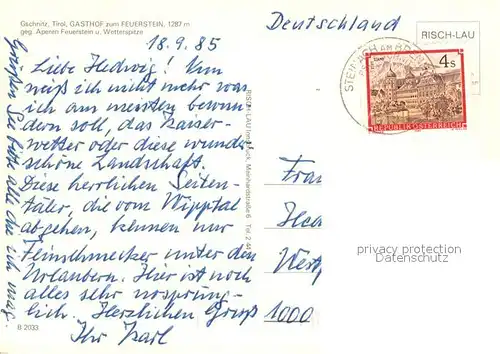 Gschnitz, Tirol, GASTHOF zum FEUERSTEIN, 1287 m
geg. Aperen Feuerstein u. Wetterspitze
18.9.85
Liebe Hedwig! Nun
weiß ich nicht mehr was
ich am meisten bewun
dern soll, das Kaiser-
wetter oder diese wunder
schöne Landschaft.
Diese herrlichen Seiten-
täler, die vom Wipptal
abgehen, können nur
Feinschmecker unter den
Urlaubern. Hier ist noch
alles sehr ursprüng-
lich. Herzlichen Gruß
Ihr Karl
Grüßen Sie bitte alle die ich mag.
B 2033
RISCH-LAU Innsbruck, Meinhardstraße 6 Tel. 2 44
Deutschland
RISCH-LAU
STEINACH AM BR
4 s
REPUBLIK ÖSTERREICH
Frau
1000
privacy protection
Datenschutz